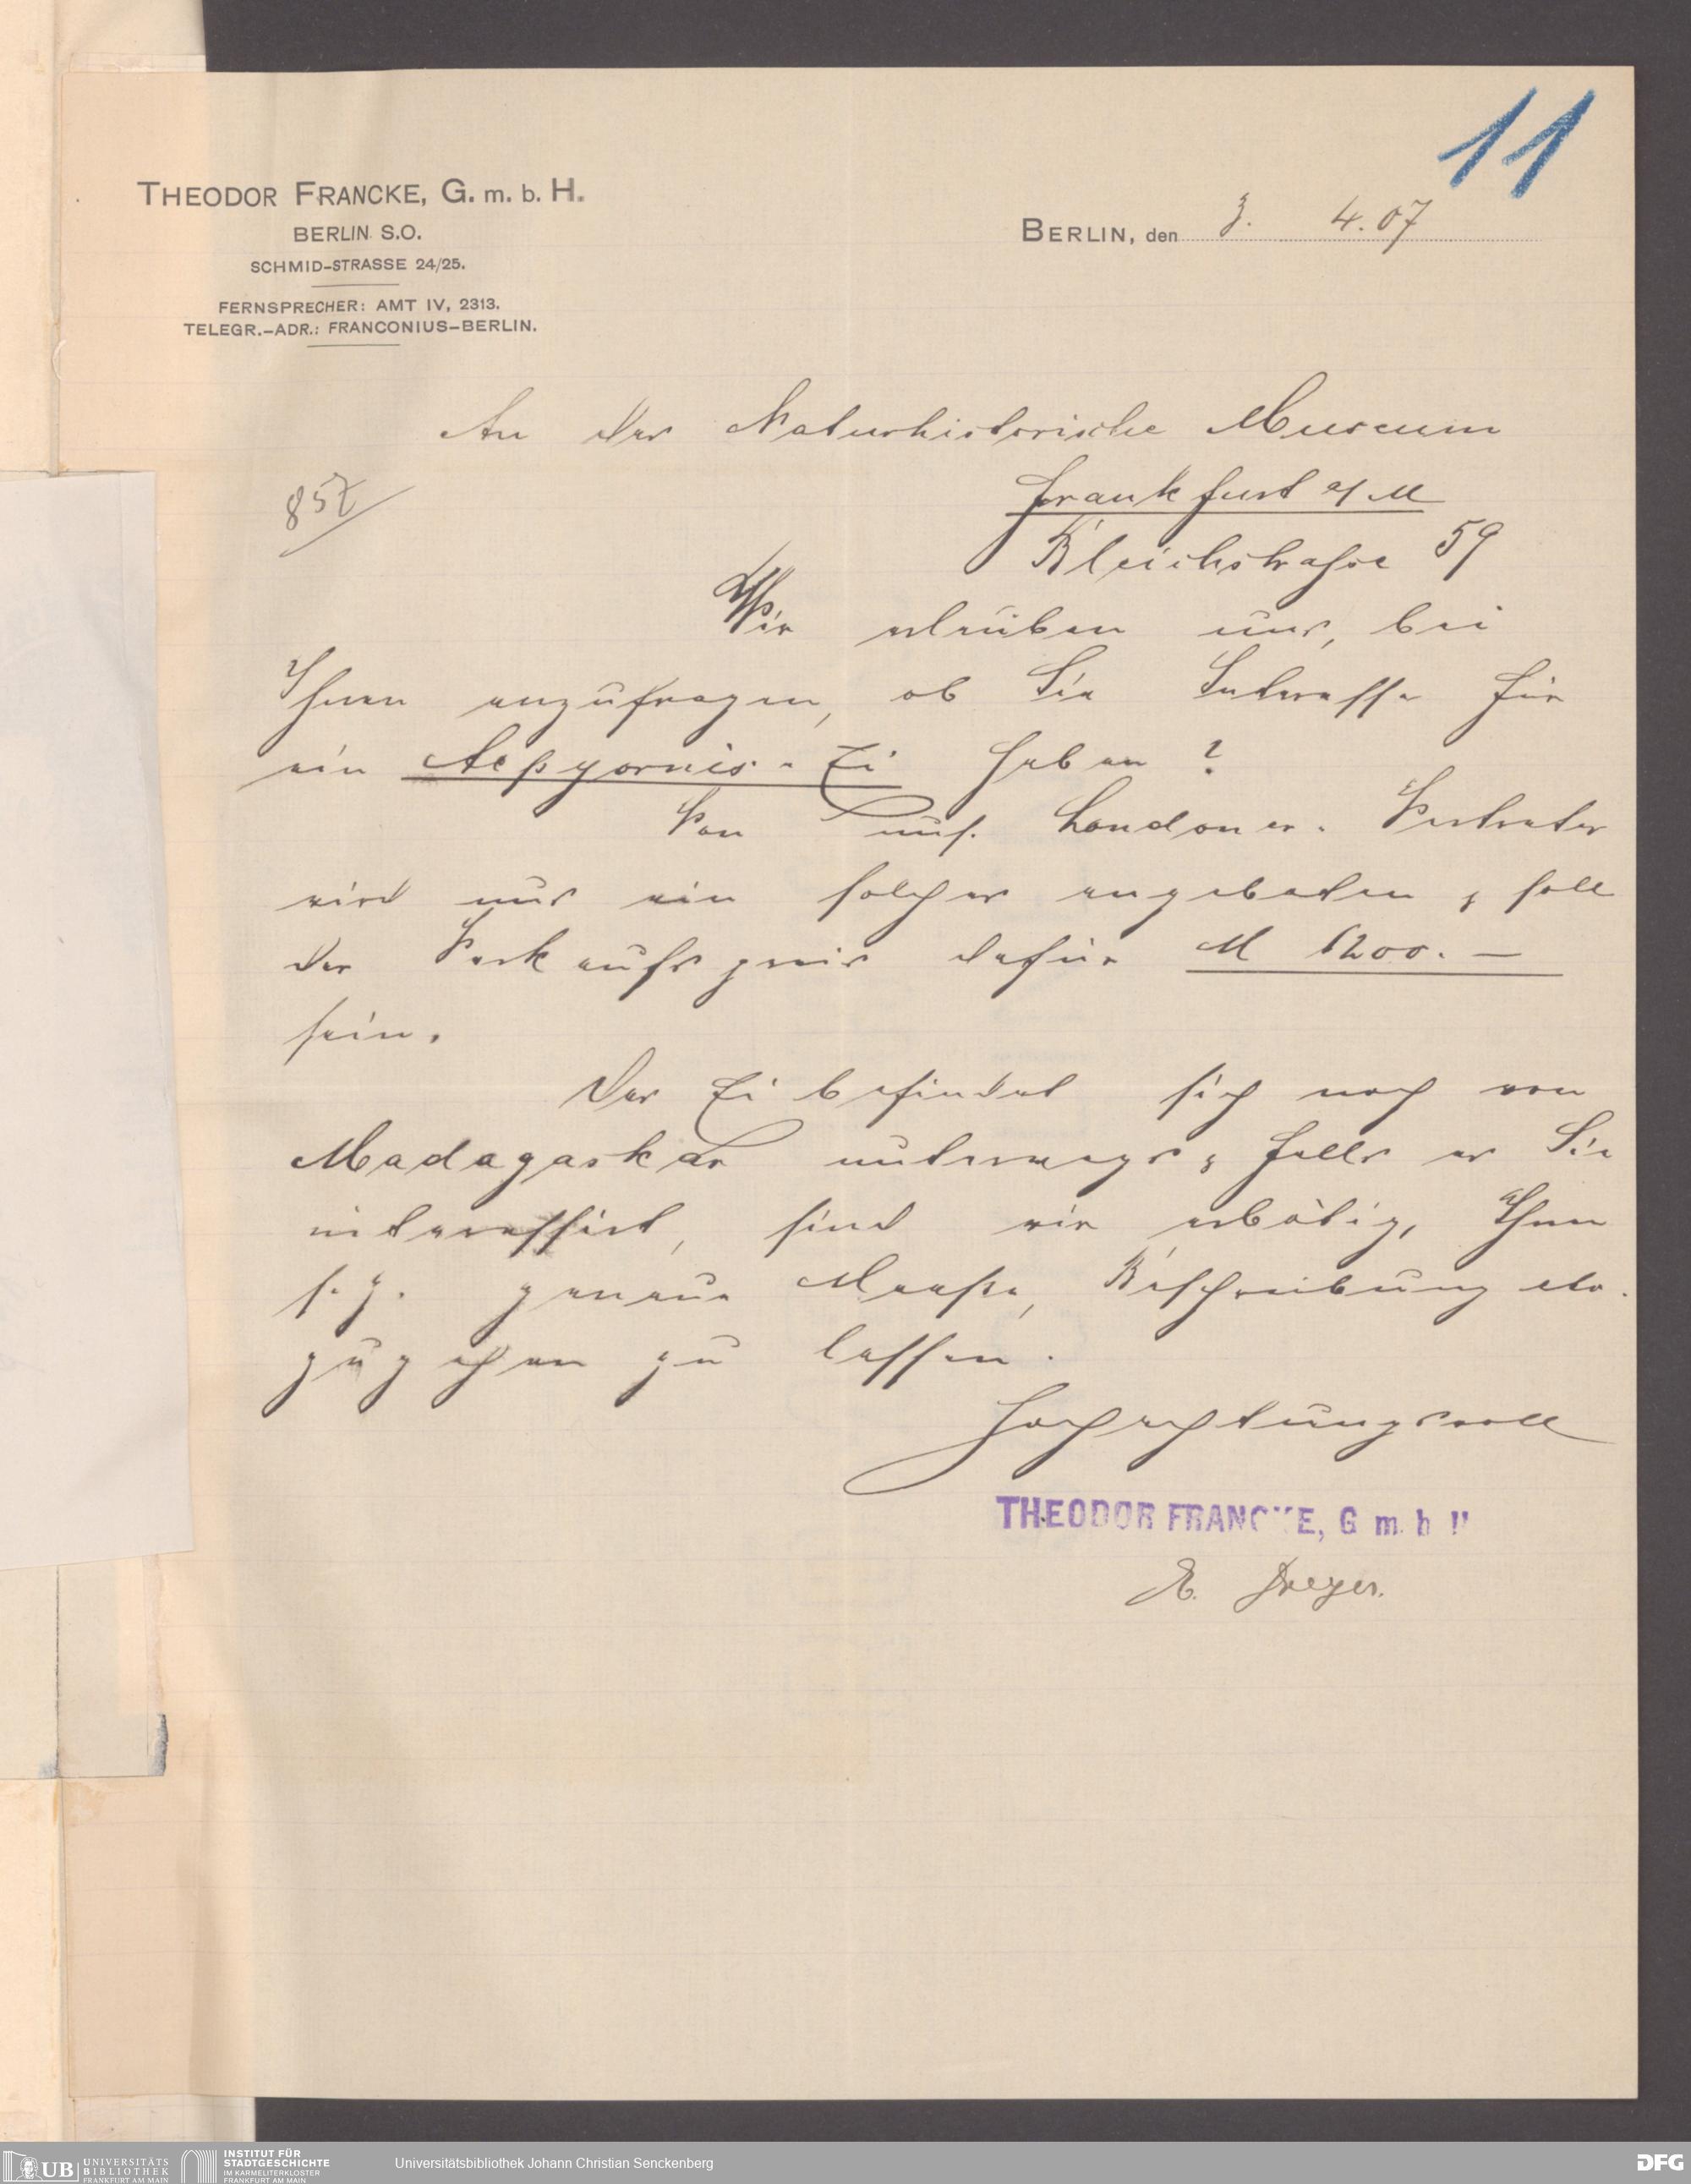 11
THEODOR FRANCKE, G. m. b. H.
BERLIN S.O.
SCHMID-STRASSE 24/25.
FERNSPRECHER: AMT IV, 2313.
TELEGR.-ADR.: FRANCONIUS-BERLIN.
BERLIN, den 3. 4. 07
An das Naturhistorische Museum
Frankfurt a/M
857
Bleichstrasse 59
Wir erlauben uns, bei
Ihnen anzufragen, ob Sie Interesse für
ein Aepyornis-Ei haben?
Von uns. Londoner Vertreter
wird uns ein solches angeboten & soll
der Verkaufspreis dafür M 1200.—
sein.
Das Ei befindet sich noch von
Madagaskar unterwegs & falls es Sie
interessirt, sind wir erbötig, Ihnen
s. Z. genaue Maasse, Beschreibung etc.
zugehen zu lassen.
Hochachtungsvoll
THEODOR FRANCKE, G m. b H
E. Dreyer.
UB UNIVERSITÄTS BIBLIOTHEK FRANKFURT AM MAIN
INSTITUT FÜR STADTGESCHICHTE IM KARMELITERKLOSTER FRANKFURT AM MAIN
Universitätsbibliothek Johann Christian Senckenberg
DFG